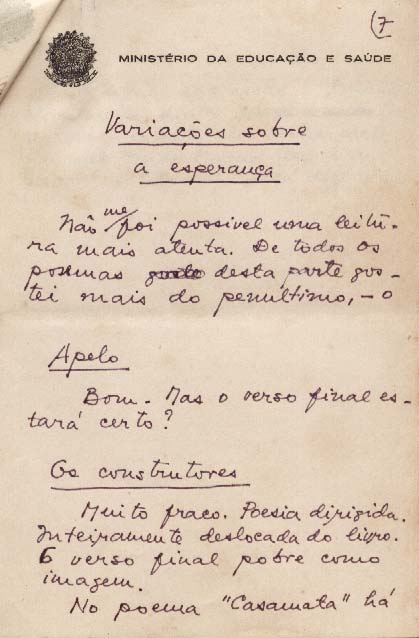 (7
MINISTÉRIO DA EDUCAÇÃO E SAÚDE
Variações sobre
a esperança
Não me foi possivel uma leitu-
ra mais atenta. De todos os
poemas desta parte gos-
tei mais do penultimo, – o
Apelo
Bom. Mas o verso final es-
tará certo?
Os construtores
Muito fraco. Poesia dirigida.
Inteiramente deslocada do livro.
O verso final pobre como
imagem.
No poema "Casamata" há